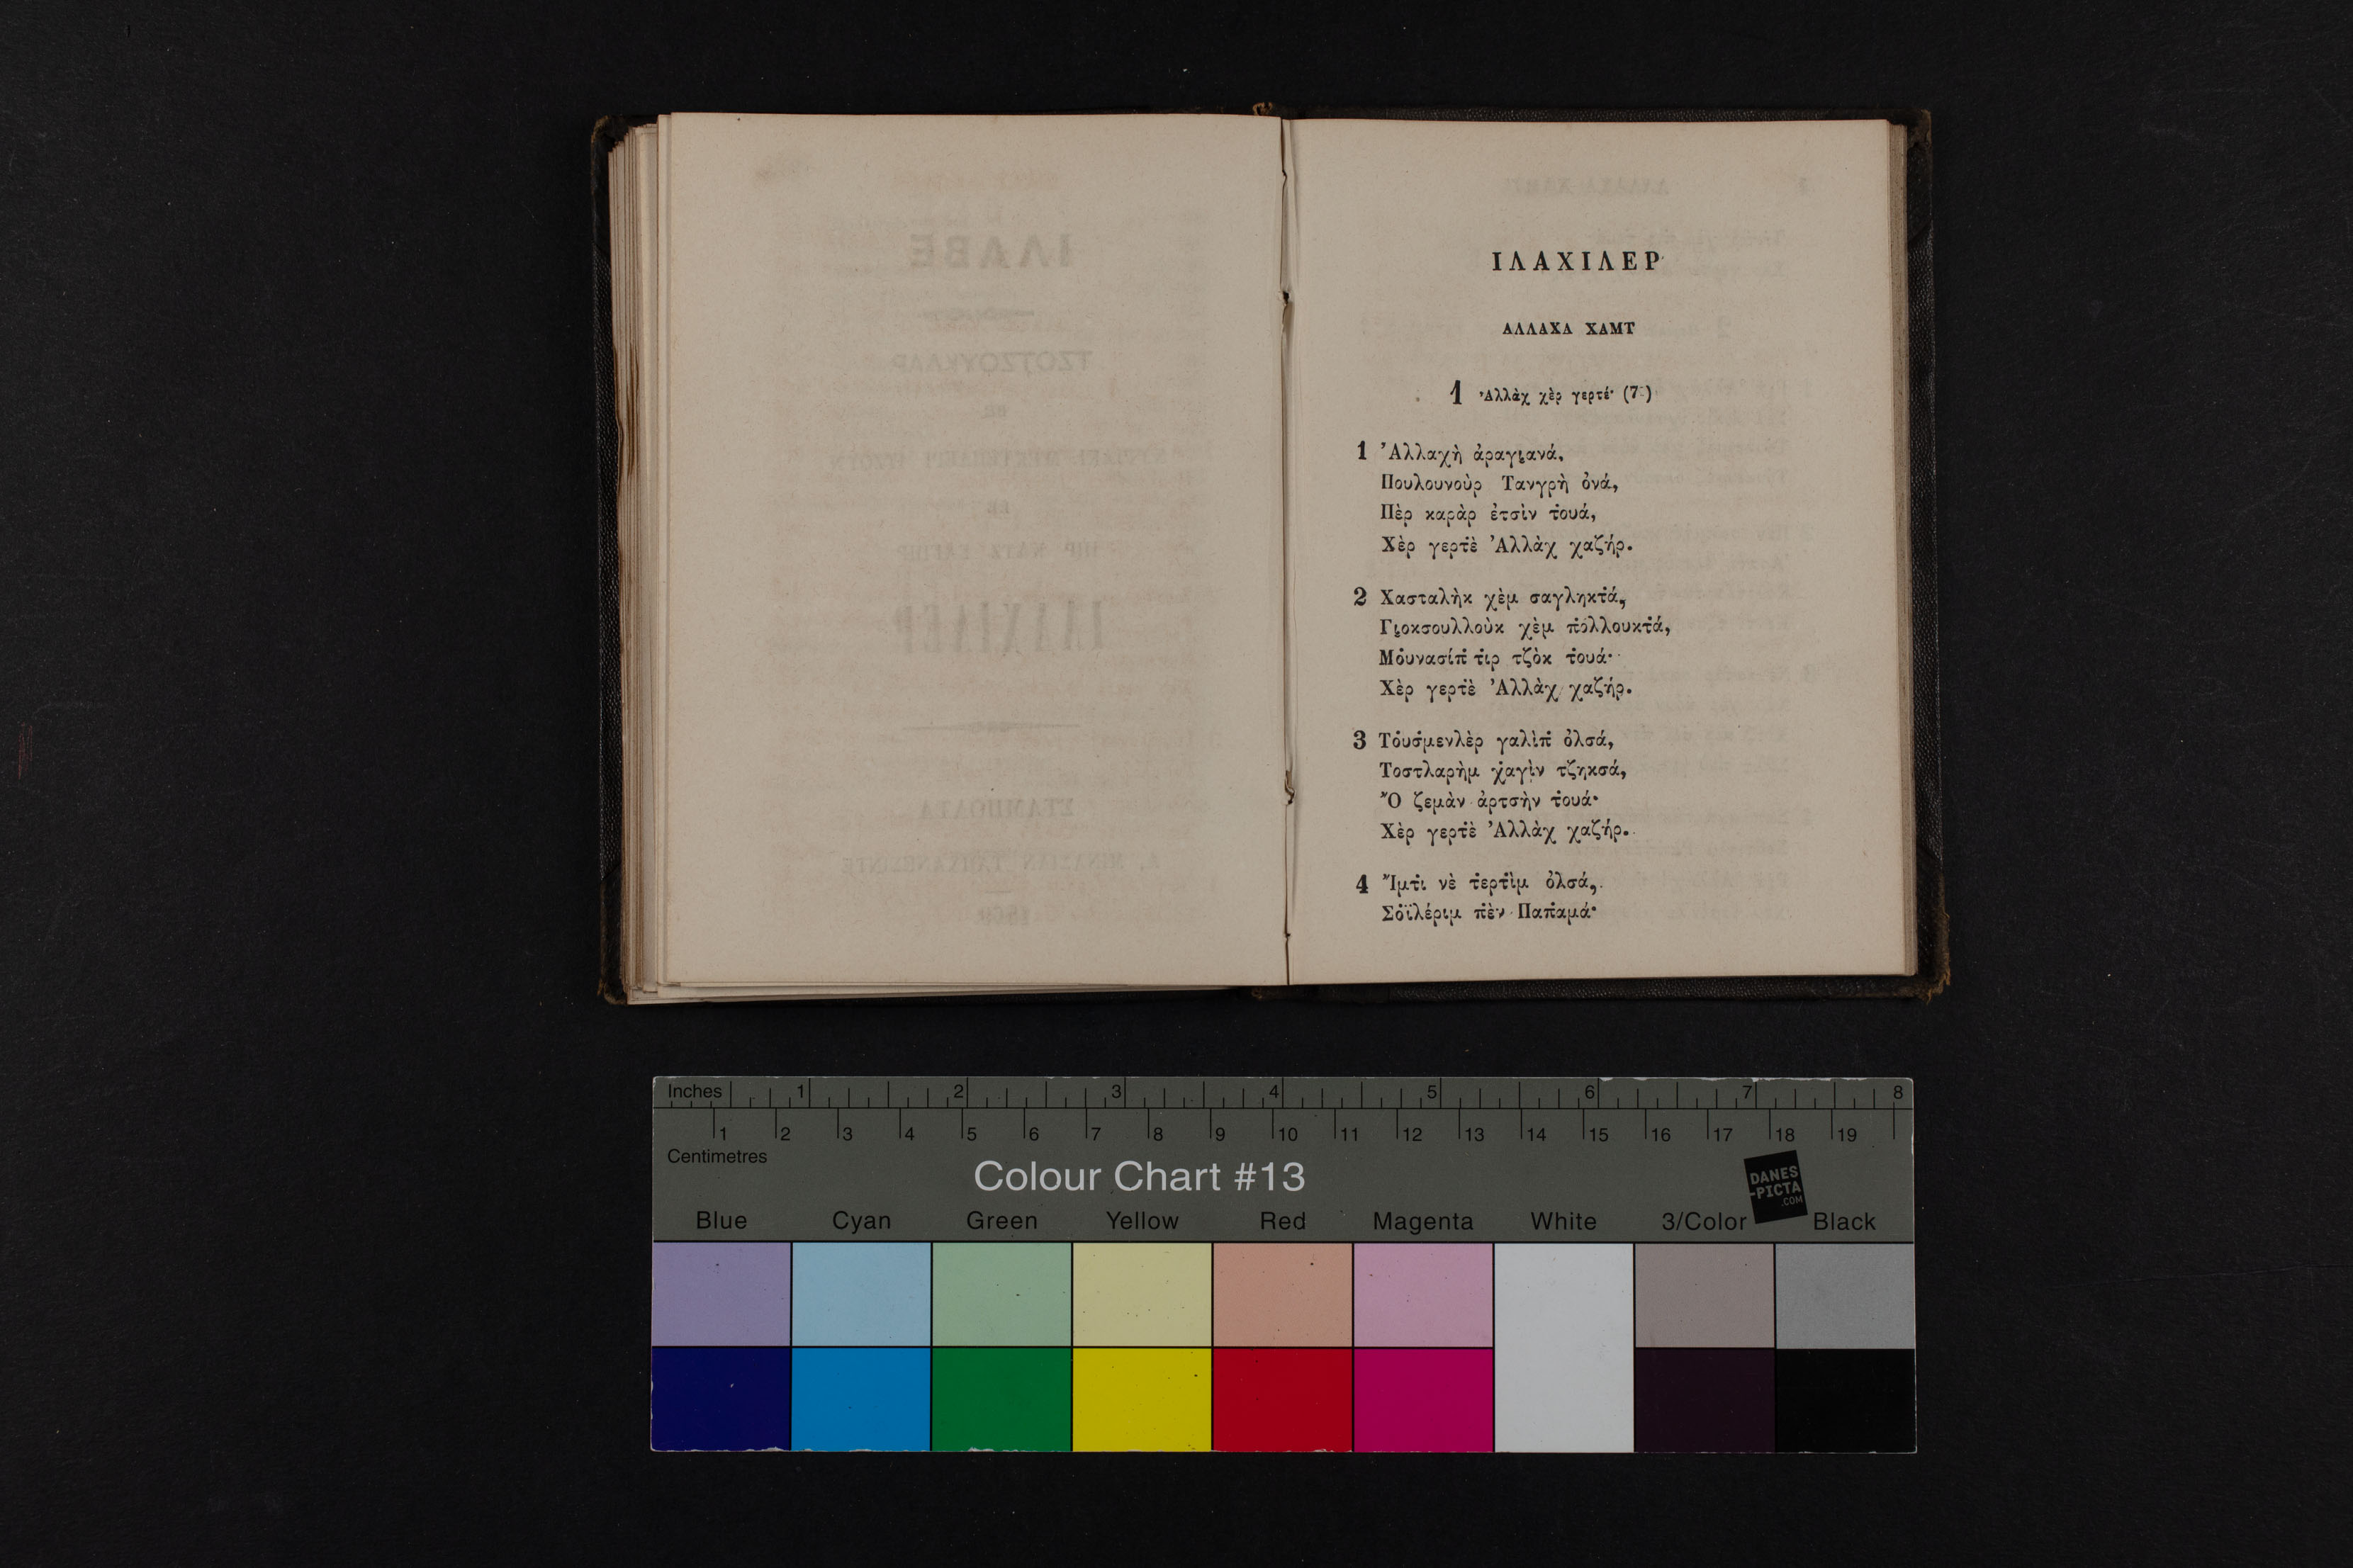 ΙΛΑΧΙΛΕΡ
ΑΛΛΑΧΑ ΧΑΜΤ
1 Ἀλλὰχ χὲρ γερτέ· (7)
1 Ἀλλαχὴ ἀραγιανά,
Πουλουνοὺρ Τανγρὴ ὀνά,
Πὲρ καρὰρ ἐτσὶν τ̇ουά,
Χὲρ γερτ̇ὲ Ἀλλὰχ χαζήρ.
2 Χασταλὴκ χὲμ σαγληκτ̇ά,
Γιοκσουλλοὺκ χὲμ π̇ολλουκτ̇ά,
Μο̇υνασίπ̇ τ̇ιρ τζὸκ τ̇ουά·
Χὲρ γερτ̇ὲ Ἀλλὰχ χαζήρ.
3 Το̇υσ̇μενλὲρ γαλὶπ̇ ὀλσά,
Τοστλαρὴμ χ̇αγὶν τζηκσά,
Ὂ ζεμὰν ἀρτσὴν τ̇ουά·
Χὲρ γερτ̇ὲ Ἀλλὰχ χαζήρ.
4 Ἴμτ̇ι νὲ τ̇ερτ̇ὶμ ὀλσά,
Σο̇ϊλέριμ π̇ὲν Παπ̇αμά·
Inches 1 2 3 4 5 6 7 8
1 2 3 4 5 6 7 8 9 10 11 12 13 14 15 16 17 18 19
Centimetres
Colour Chart #13
DANES
-PICTA
.COM
Blue Cyan Green Yellow Red Magenta White 3/Color Black